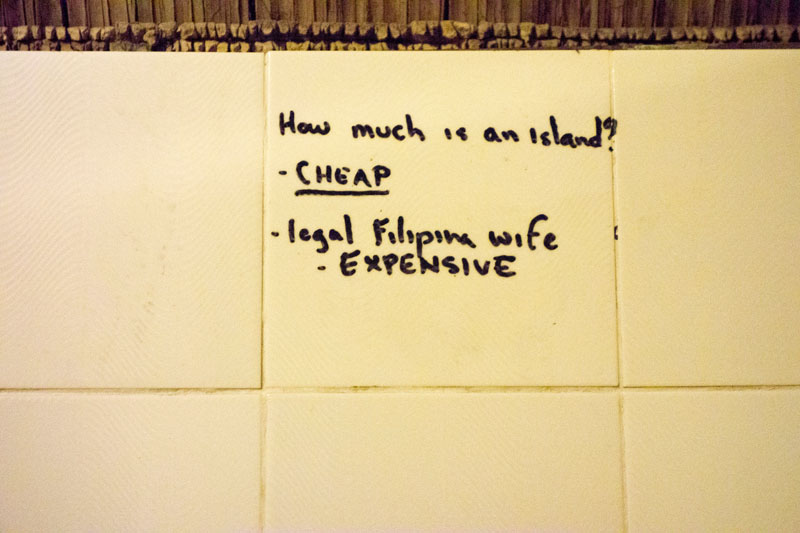 How much is an island?
- CHEAP
- legal Filipina wife
- EXPENSIVE